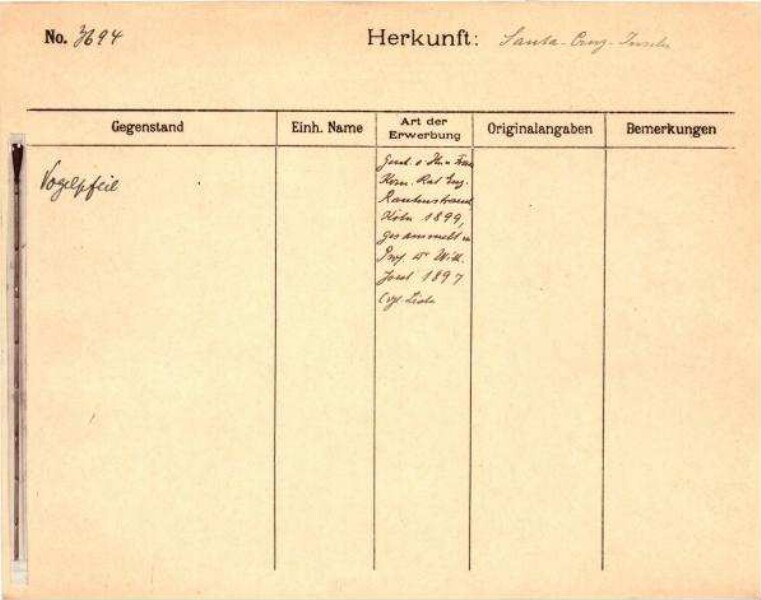 No. 3694
Herkunft: Santa-Cruz-Inseln
Gegenstand
Einh. Name
Art der
Erwerbung
Originalangaben
Bemerkungen
Vogelpfeil
Gesch. v. Frau
Kom. Rat Eug.
Rautenstrauch
Köln 1899,
gesammelt v.
Prof. Dr. Wilh.
Joest 1897